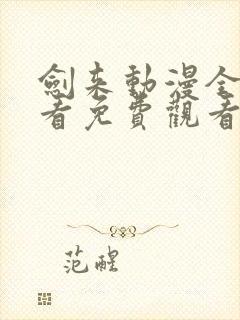 劍來動漫全
看免費觀看
范醒